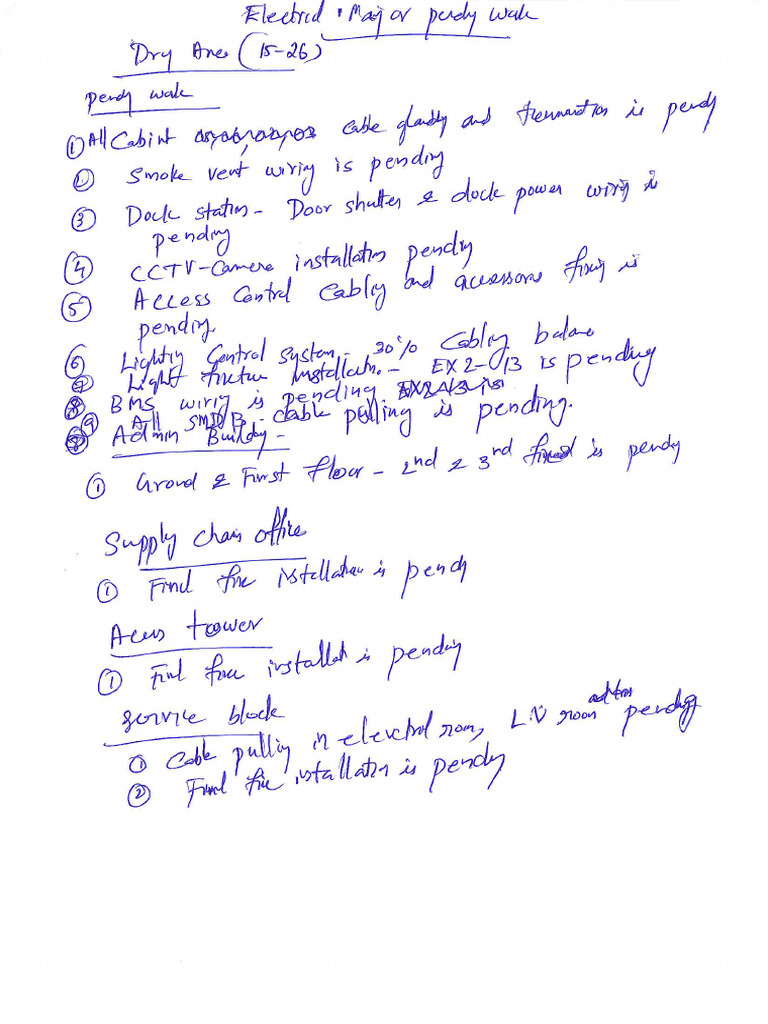 Electrical Major pendy work
Dry Area (15-26)
pendy work
① All Cabint cable glandig and Termination is pendy
② Smoke vent wiring is pending
③ Dock station - Door shutter & dock power wiring is
pending
④ CCTV-Camera installation pending
⑤ Access Control Cabling and accessories fixing is
pending.
⑥ Lighting Control System - 30% Cabling balance
⑦ Light fixture Installation - EX2-13 is pending
⑧ BMS wiring is pending
⑨ All SMDB - cable pulling is pending.
Admin Building -
① Ground & First Floor - 2nd & 3rd is pendy
Supply chain office
① Final fix installation is pendy
Access tower
① Final fix installat is pending
Service block
① Cable pulling in electrical room, L.V room pending
② Final fix installation is pendy